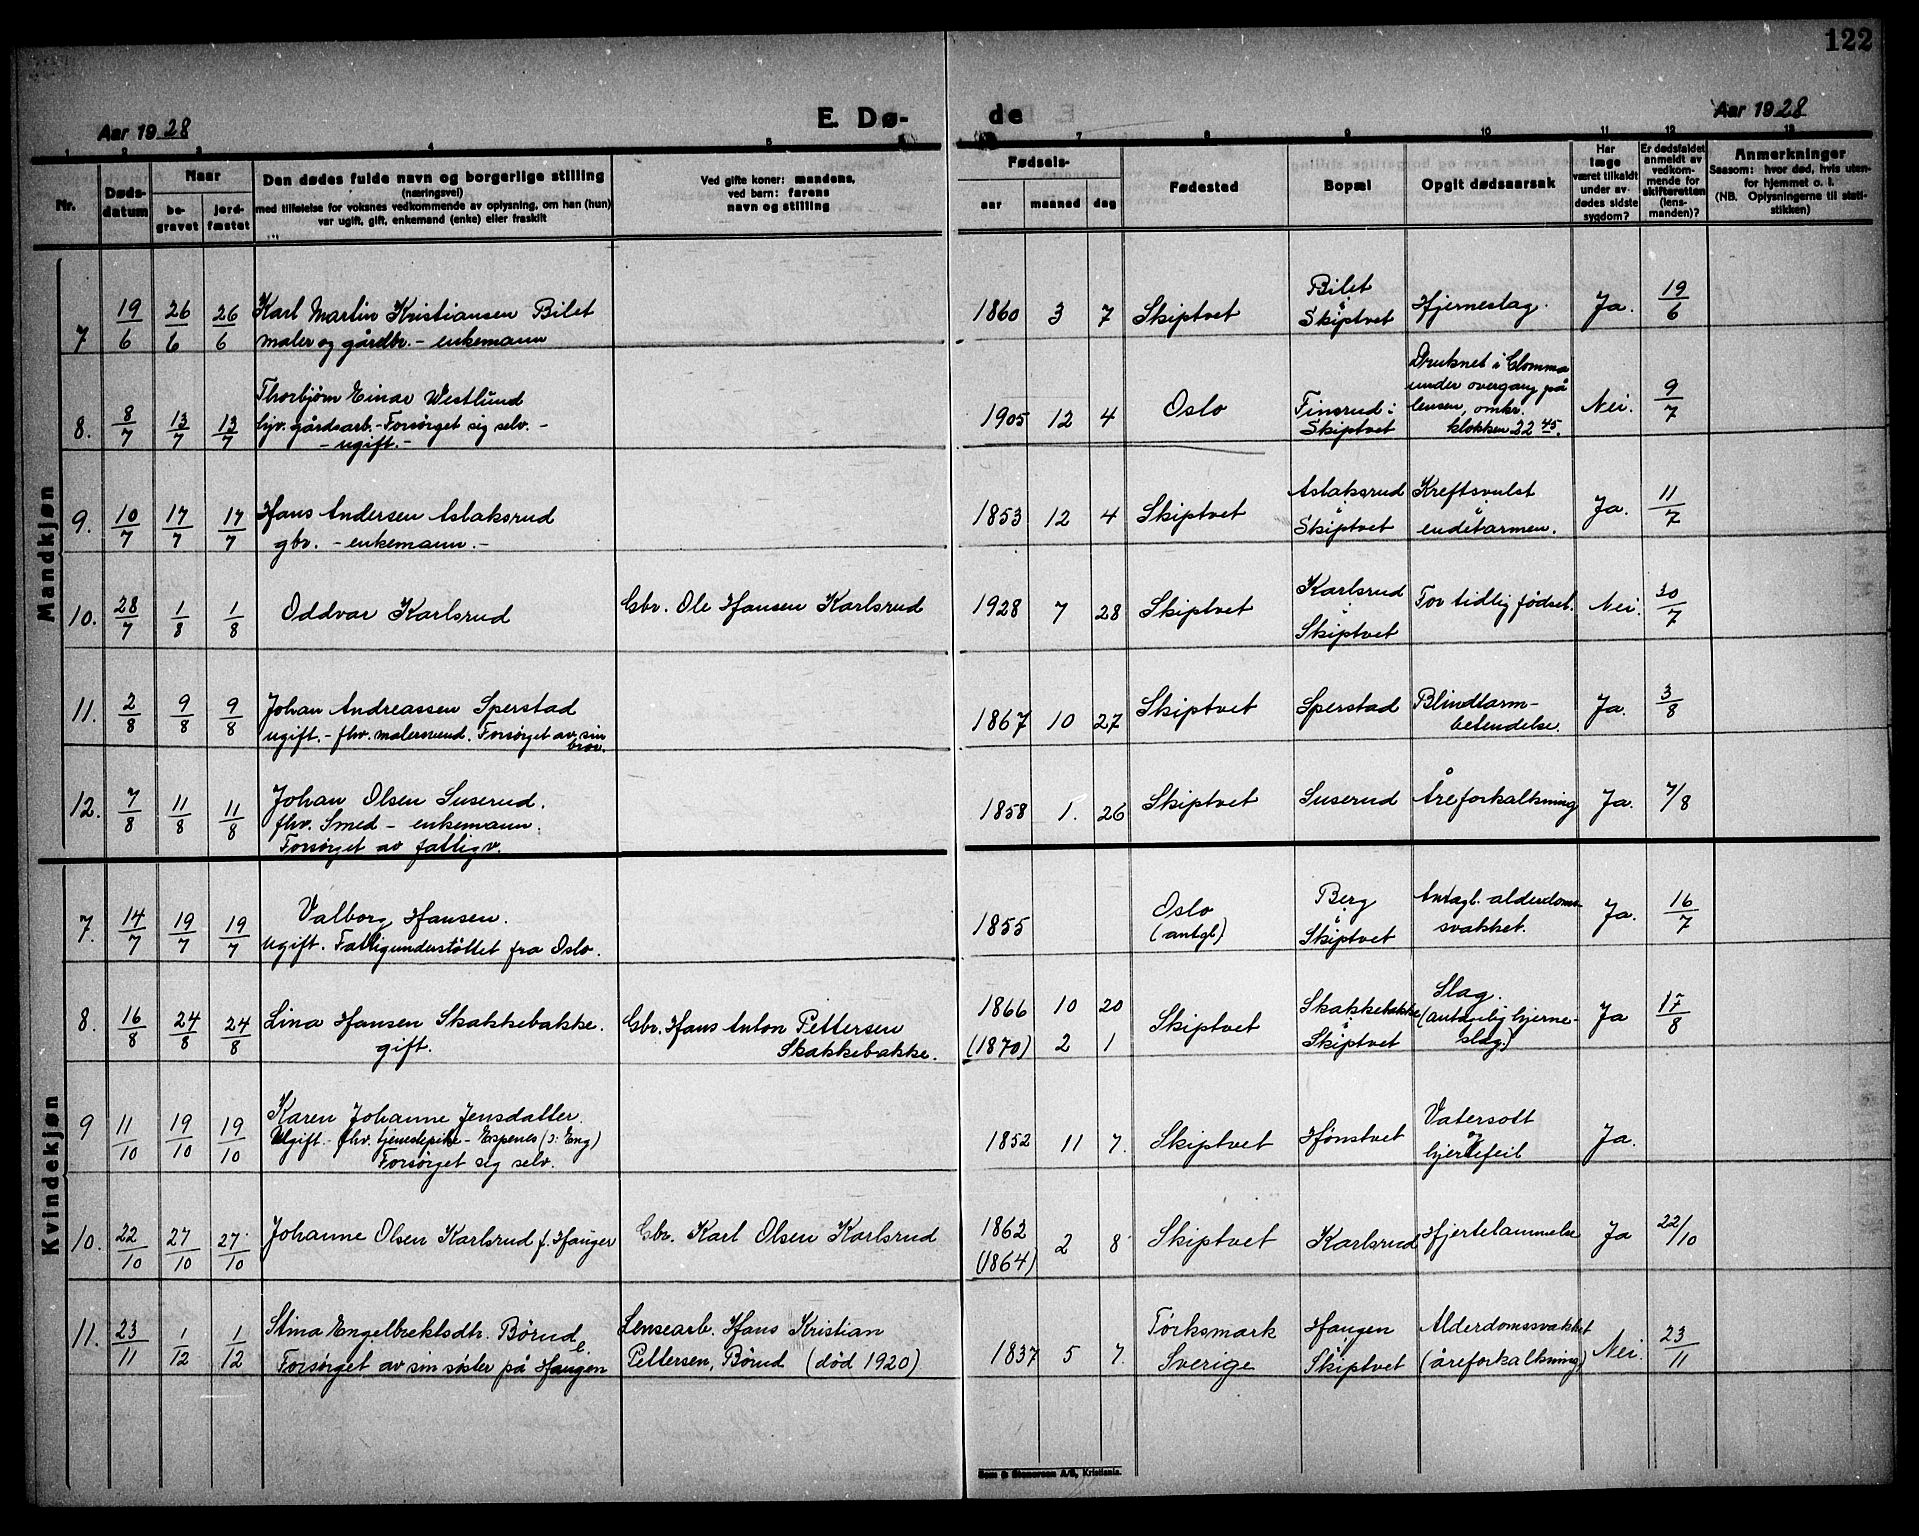 122
Aar 1928
E. Dø-
de
Aar 1928
1 2 3 4 5 6 7 8 9 10 11 12 13
Nr.
Døds-
datum
Naar
be-
gravet
jord-
fæstet
Den dødes fulde navn og borgerlige stilling
(næringsvei)
med tilføielse for voksnes vedkommende av oplysning, om han (hun)
var ugift, gift, enkemand (enke) eller fraskilt
Ved gifte koner: mandens,
ved barn: farens
navn og stilling
Fødsels-
aar
maaned
dag
Fødested
Bopæl
Opgit dødsaarsak
Har
læge
været tilkaldt
under av-
dødes sidste
sygdom?
Er dødsfaldet
anmeldt av
vedkom-
mende for
skifteretten
(lens-
manden)?
Anmerkninger
Saasom: hvor død, hvis uten-
for hjemmet o. l.
(NB. Oplysningerne til stati-
stikken)
Mandkjøn
7 19/6 26/6 26/6 Karl Martin Kristiansen Bilet
maler og gårdbr. - enkemann
1860 3 7 Skiptvet Bilet i Skiptvet Hjerneslag. Ja. 19/6
8. 8/7 13/7 13/7 Thorbjørn Einar Westlund
gårdsarb. - Forsørget sig selv. -
- ugift. -
1905 12 4 Oslo Finsrud i Skiptvet
Druknet i Glomma
under overgang på
lensen, omkr.
klokken 22 45.
Nei. 9/7
9. 10/7 17/7 17/7 Hans Andersen Aslaksrud
gbr. - enkemann. -
1853 12 4 Skiptvet Aslaksrud i Skiptvet Kreftsvulst i
endetarmen. Ja. 11/7
10. 28/7 1/8 1/8 Oddvar Karlsrud Gbr. Ole Hansen Karlsrud
1928 7 28 Skiptvet Karlsrud i Skiptvet For tidlig fødset. Nei. 30/7
11. 2/8 9/8 9/8 Johan Andreassen Sperstad
ugift. - fhv. malersvend. Forsørget av sin
bror.
1867 10 27 Skiptvet Sperstad Blindtarm-
betendelse. Ja. 3/8
12. 7/8 11/8 11/8 Johan Olsen Suserud.
fhv. Smed - enkemann.
Forsørget av fattigv.
1858 1. 26 Skiptvet Suserud Åreforkalkning Ja. 7/8
Kvindekjøn
7. 14/7 19/7 19/7 Valborg Hansen.
ugift. Fattigunderstöttet fra Oslo.
1855 Oslo
(antgl.)
Berg i Skiptvet Antagl. alderdoms-
svakket. Ja. 16/7
8. 16/8 24/8 24/8 Lina Hansen Skakkebakke.
gift.
Gbr. Hans Anton Pettersen
Skakkebakke.
1866 10 20
(1870) 2 1
Skiptvet Skakkebakke i Skiptvet Slag.
(antagelig hjerne-
slag)
Ja 17/8
9 11/10 19/10 19/10 Karen Johanne Jensdatter.
Ugift. fhv. tjenestepike - Espenes (ɔ: Eng)
Forsørget sig selv.
1852 11 7. Skiptvet Hønstvet Vatersott
og
hjertefeil Ja.
10. 22/10 27/10 27/10 Johanne Olsen Karlsrud f. Hauger Gbr. Karl Olsen Karlsrud
1863
(1864) 2 8 Skiptvet Karlsrud Hjertelammelse Ja 22/10
11. 23/11 1/12 1/12 Stina Engelbrektsdtr. Börud
e.
Forsørget av sin søster på Haugen
Lensearb. Hans Kristian
Pettersen, Börud (död 1920)
1837 5 7. Torksmark
Sverige
Haugen
Skiptvet
Alderdomssvakket
(åreforkalkning)
Nei. 23/11
Sem & Stenersen A/S, Kristiania.